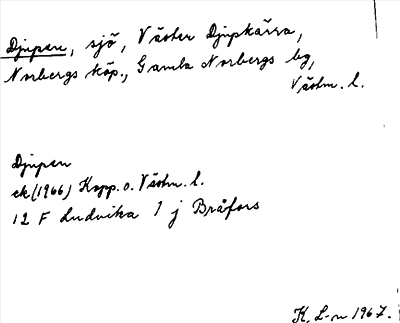 Djupen, sjö, Väster Djupkärra,
Norbergs köp., Gamla Norbergs bg,
Västm. l.
Djupen
ek (1966) Kopp. o. Västm. l.
12 F Ludvika 1 j Bråfors
K. L-n 1967.